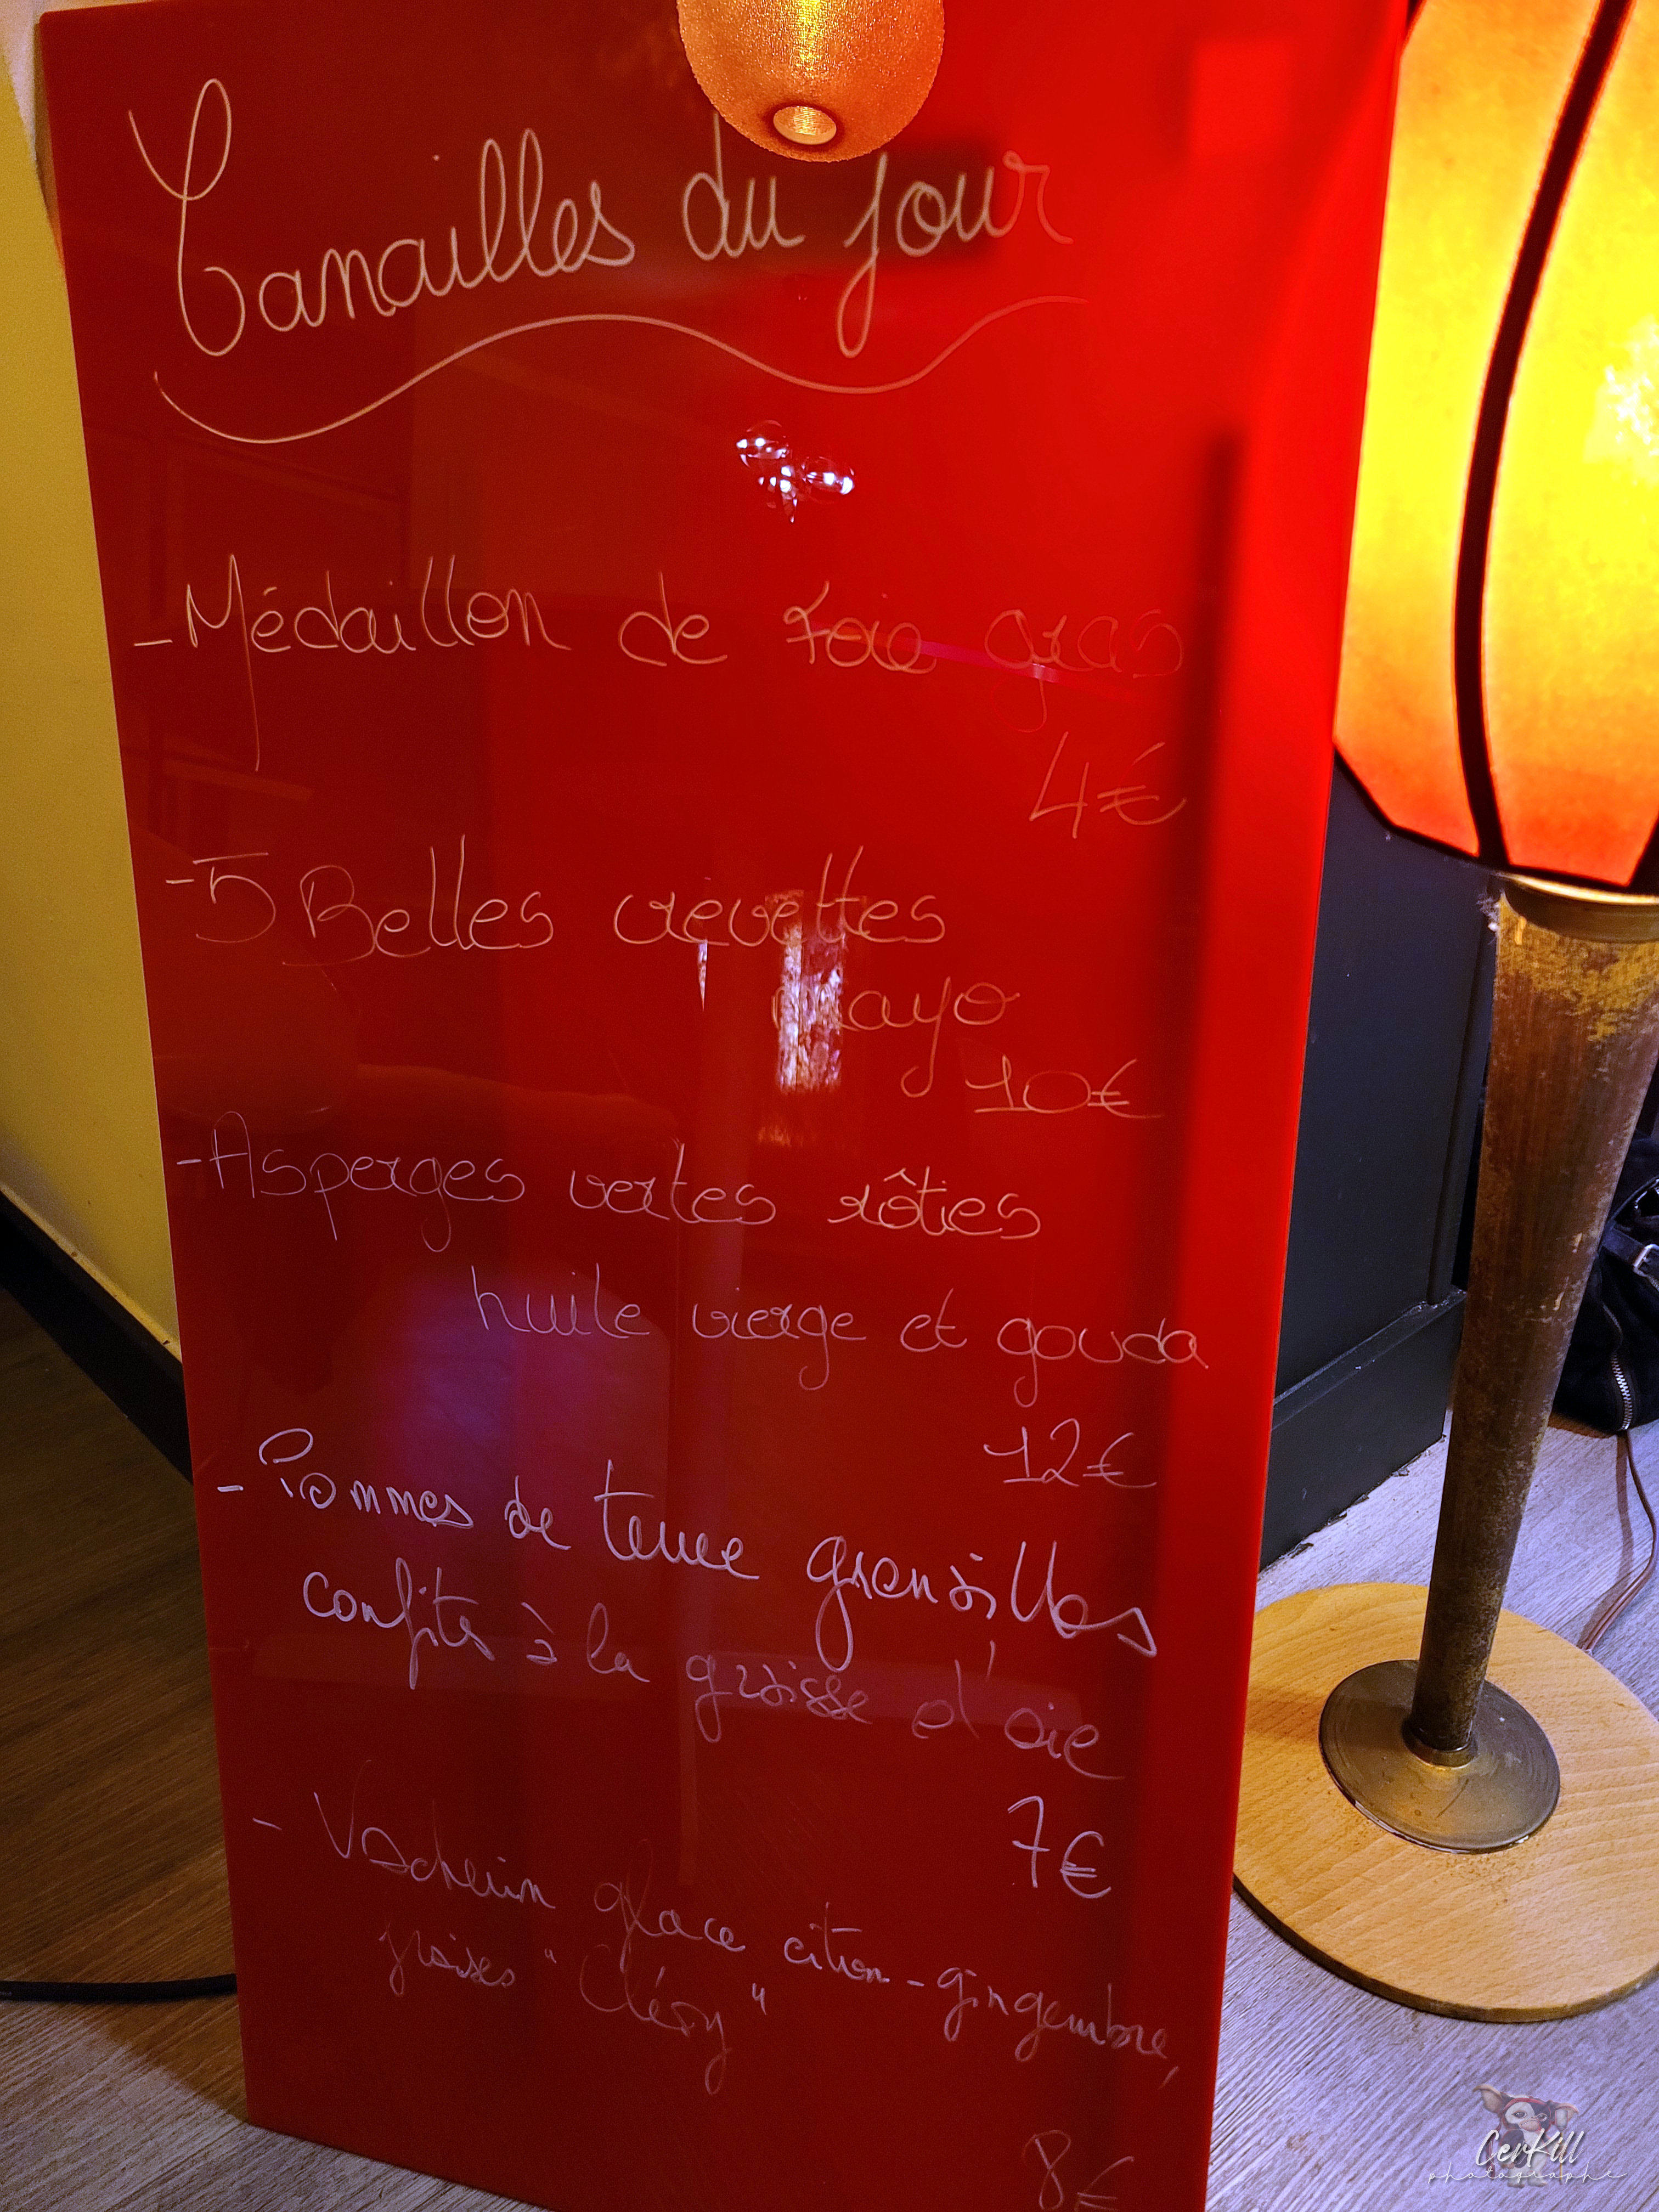 Canailles du jour
- Médaillon de foie gras
4€
- 5 Belles crevettes
mayo
10€
- Asperges vertes rôties
huile vierge et gouda
12€
- Pommes de terre grenailles
confites à la graisse d'oie
7€
- Vacherin glace citron-gingembre,
fraises "Cléry"
8€
CerKill
photographe